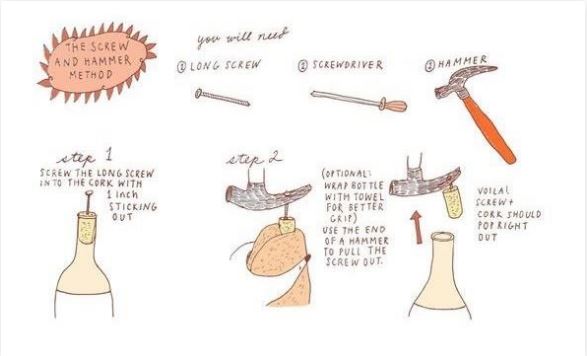 THE SCREW
AND HAMMER
METHOD
you will need
① LONG SCREW
② SCREWDRIVER
③ HAMMER
step 1
SCREW THE LONG SCREW
INTO THE CORK WITH
1 inch
STICKING
OUT
step 2
(OPTIONAL:
WRAP BOTTLE
WITH TOWEL
FOR BETTER
GRIP)
USE THE END
OF A HAMMER
TO PULL THE
SCREW OUT.
VOILA!
SCREW +
CORK SHOULD
POP RIGHT
OUT